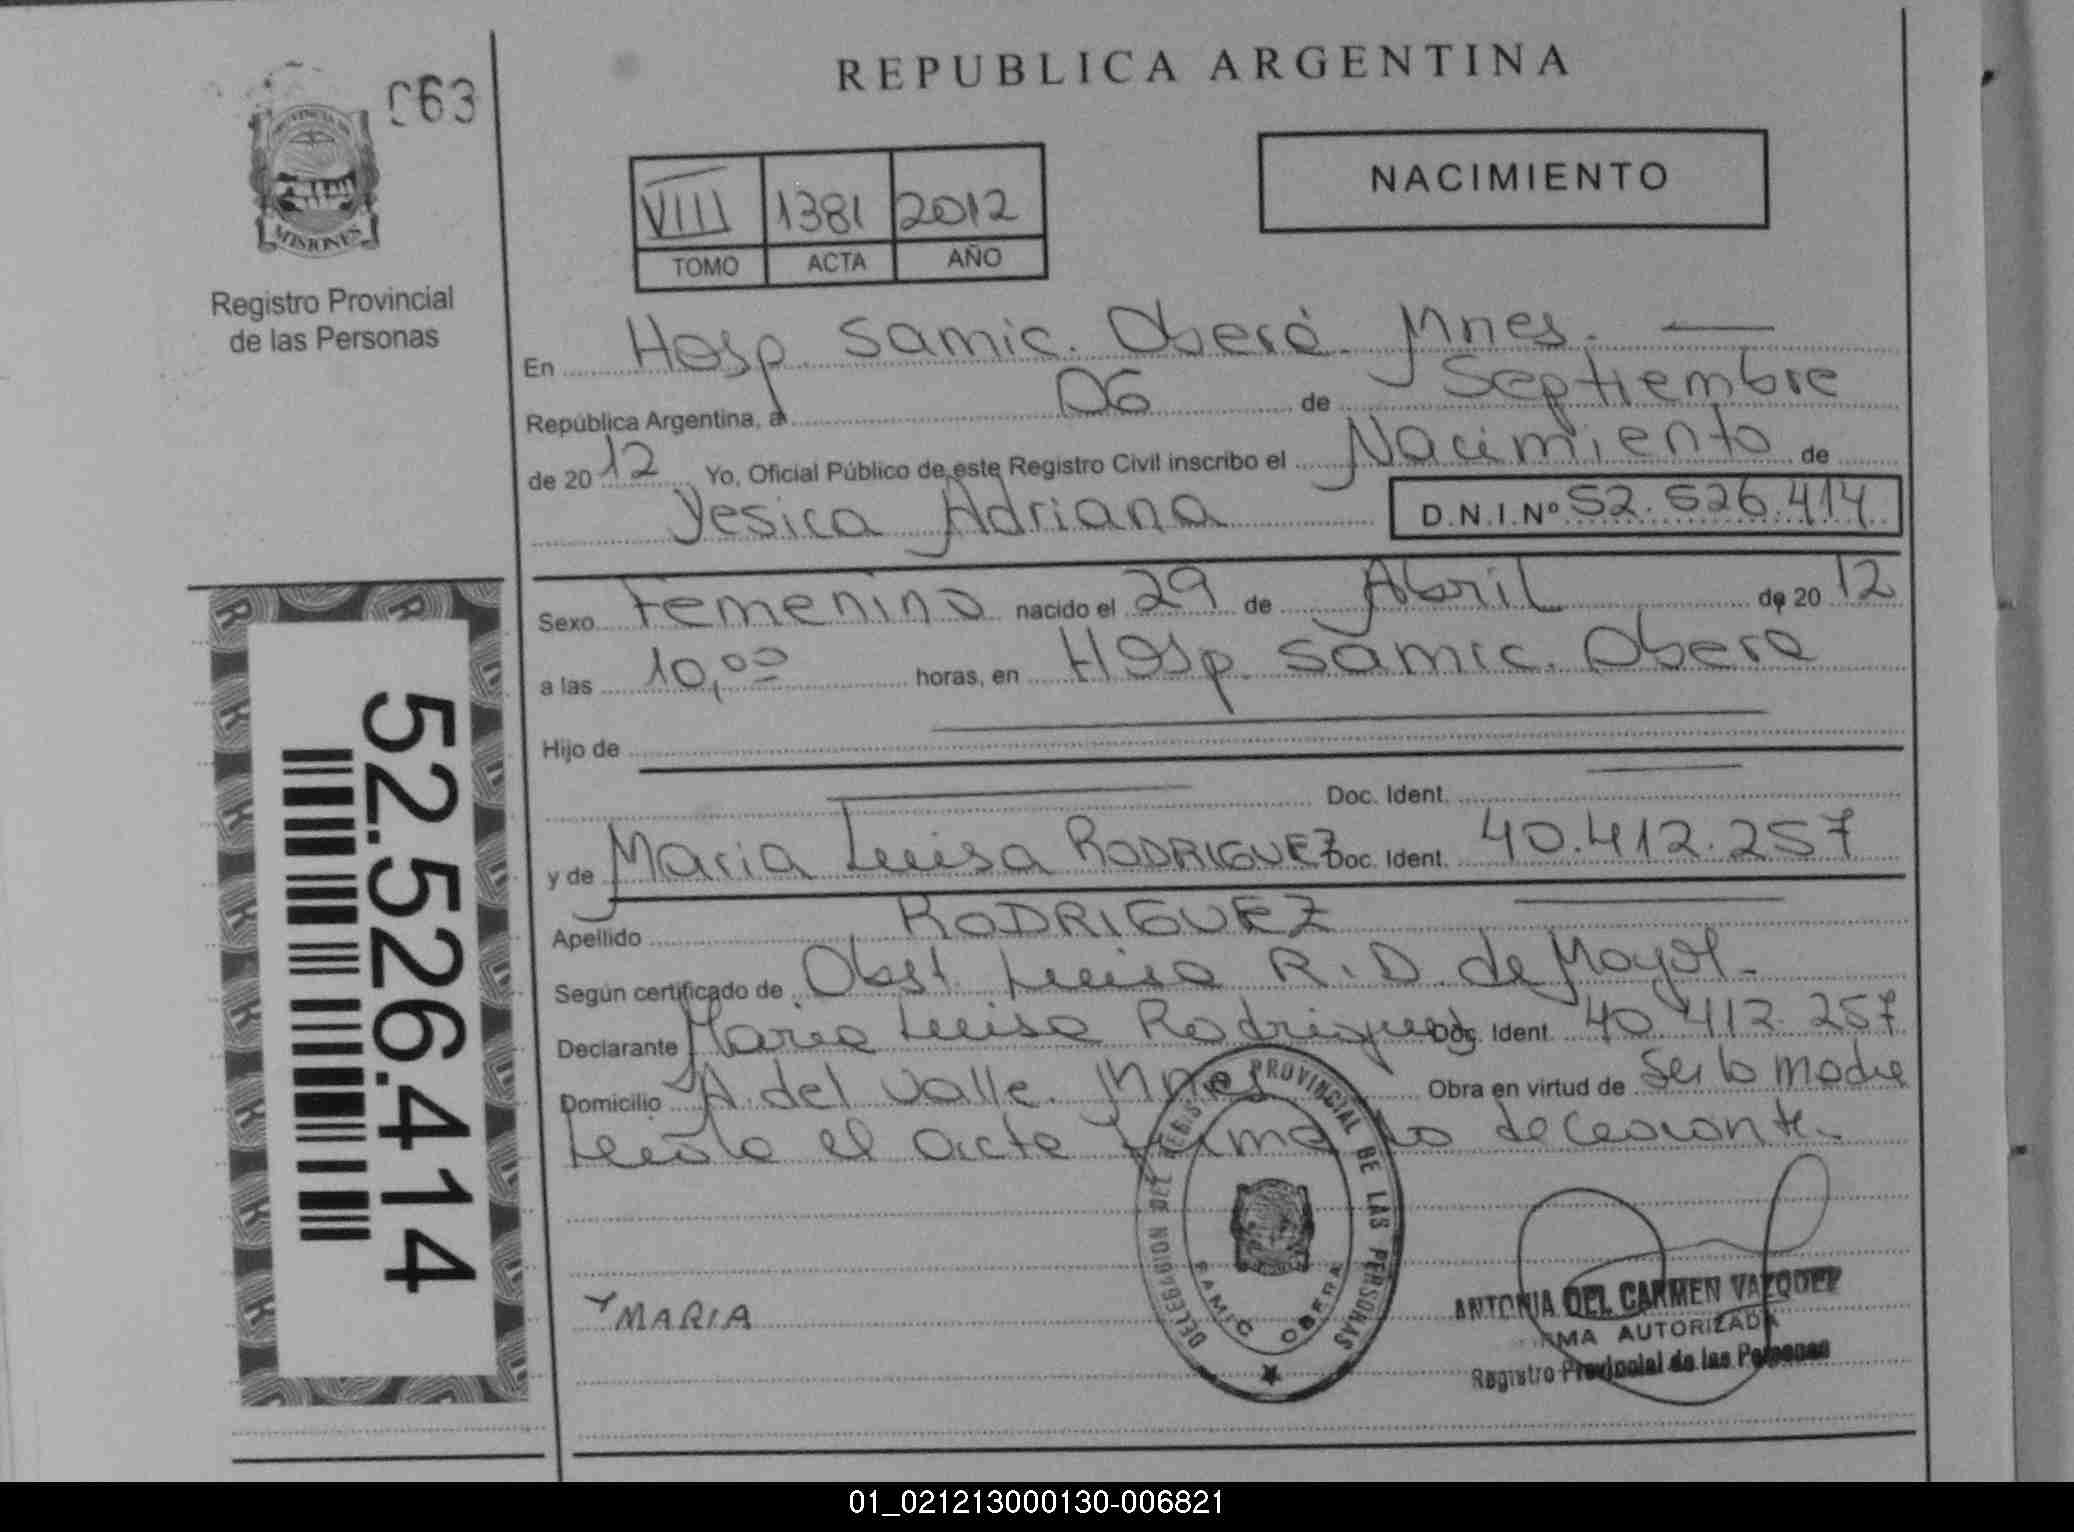 REPUBLICA ARGENTINA
063
MISIONES
Registro Provincial
de las Personas
VIII 1381 2012
TOMO ACTA AÑO
NACIMIENTO
En Hosp. Samic. Oberá. Mnes.
República Argentina, a 06 de Septiembre
de 2012 Yo, Oficial Público de este Registro Civil inscribo el Nacimiento de
Yesica Adriana D.N.I.Nº 52.526.414
Sexo Femenino nacido el 29 de Abril de 2012
a las 10,00 horas, en Hosp. Samic. Obera
Hijo de
Doc. Ident.
y de Maria Luisa RODRIGUEZ Doc. Ident. 40.412.257
Apellido RODRIGUEZ
Según certificado de Obst. Luisa R. D. de Mayol
Declarante Maria Luisa Rodriguez Doc. Ident. 40.412.257
Domicilio A. del Valle. Mnes Obra en virtud de ser la madre
Leida el acta firma la declarante.
52.526.414
DELEGACION DEL REGISTRO PROVINCIAL DE LAS PERSONAS
SAMIC OBERA
MARIA
ANTONIA DEL CARMEN VAZQUEZ
FIRMA AUTORIZADA
Registro Provincial de las Personas
01_021213000130-006821